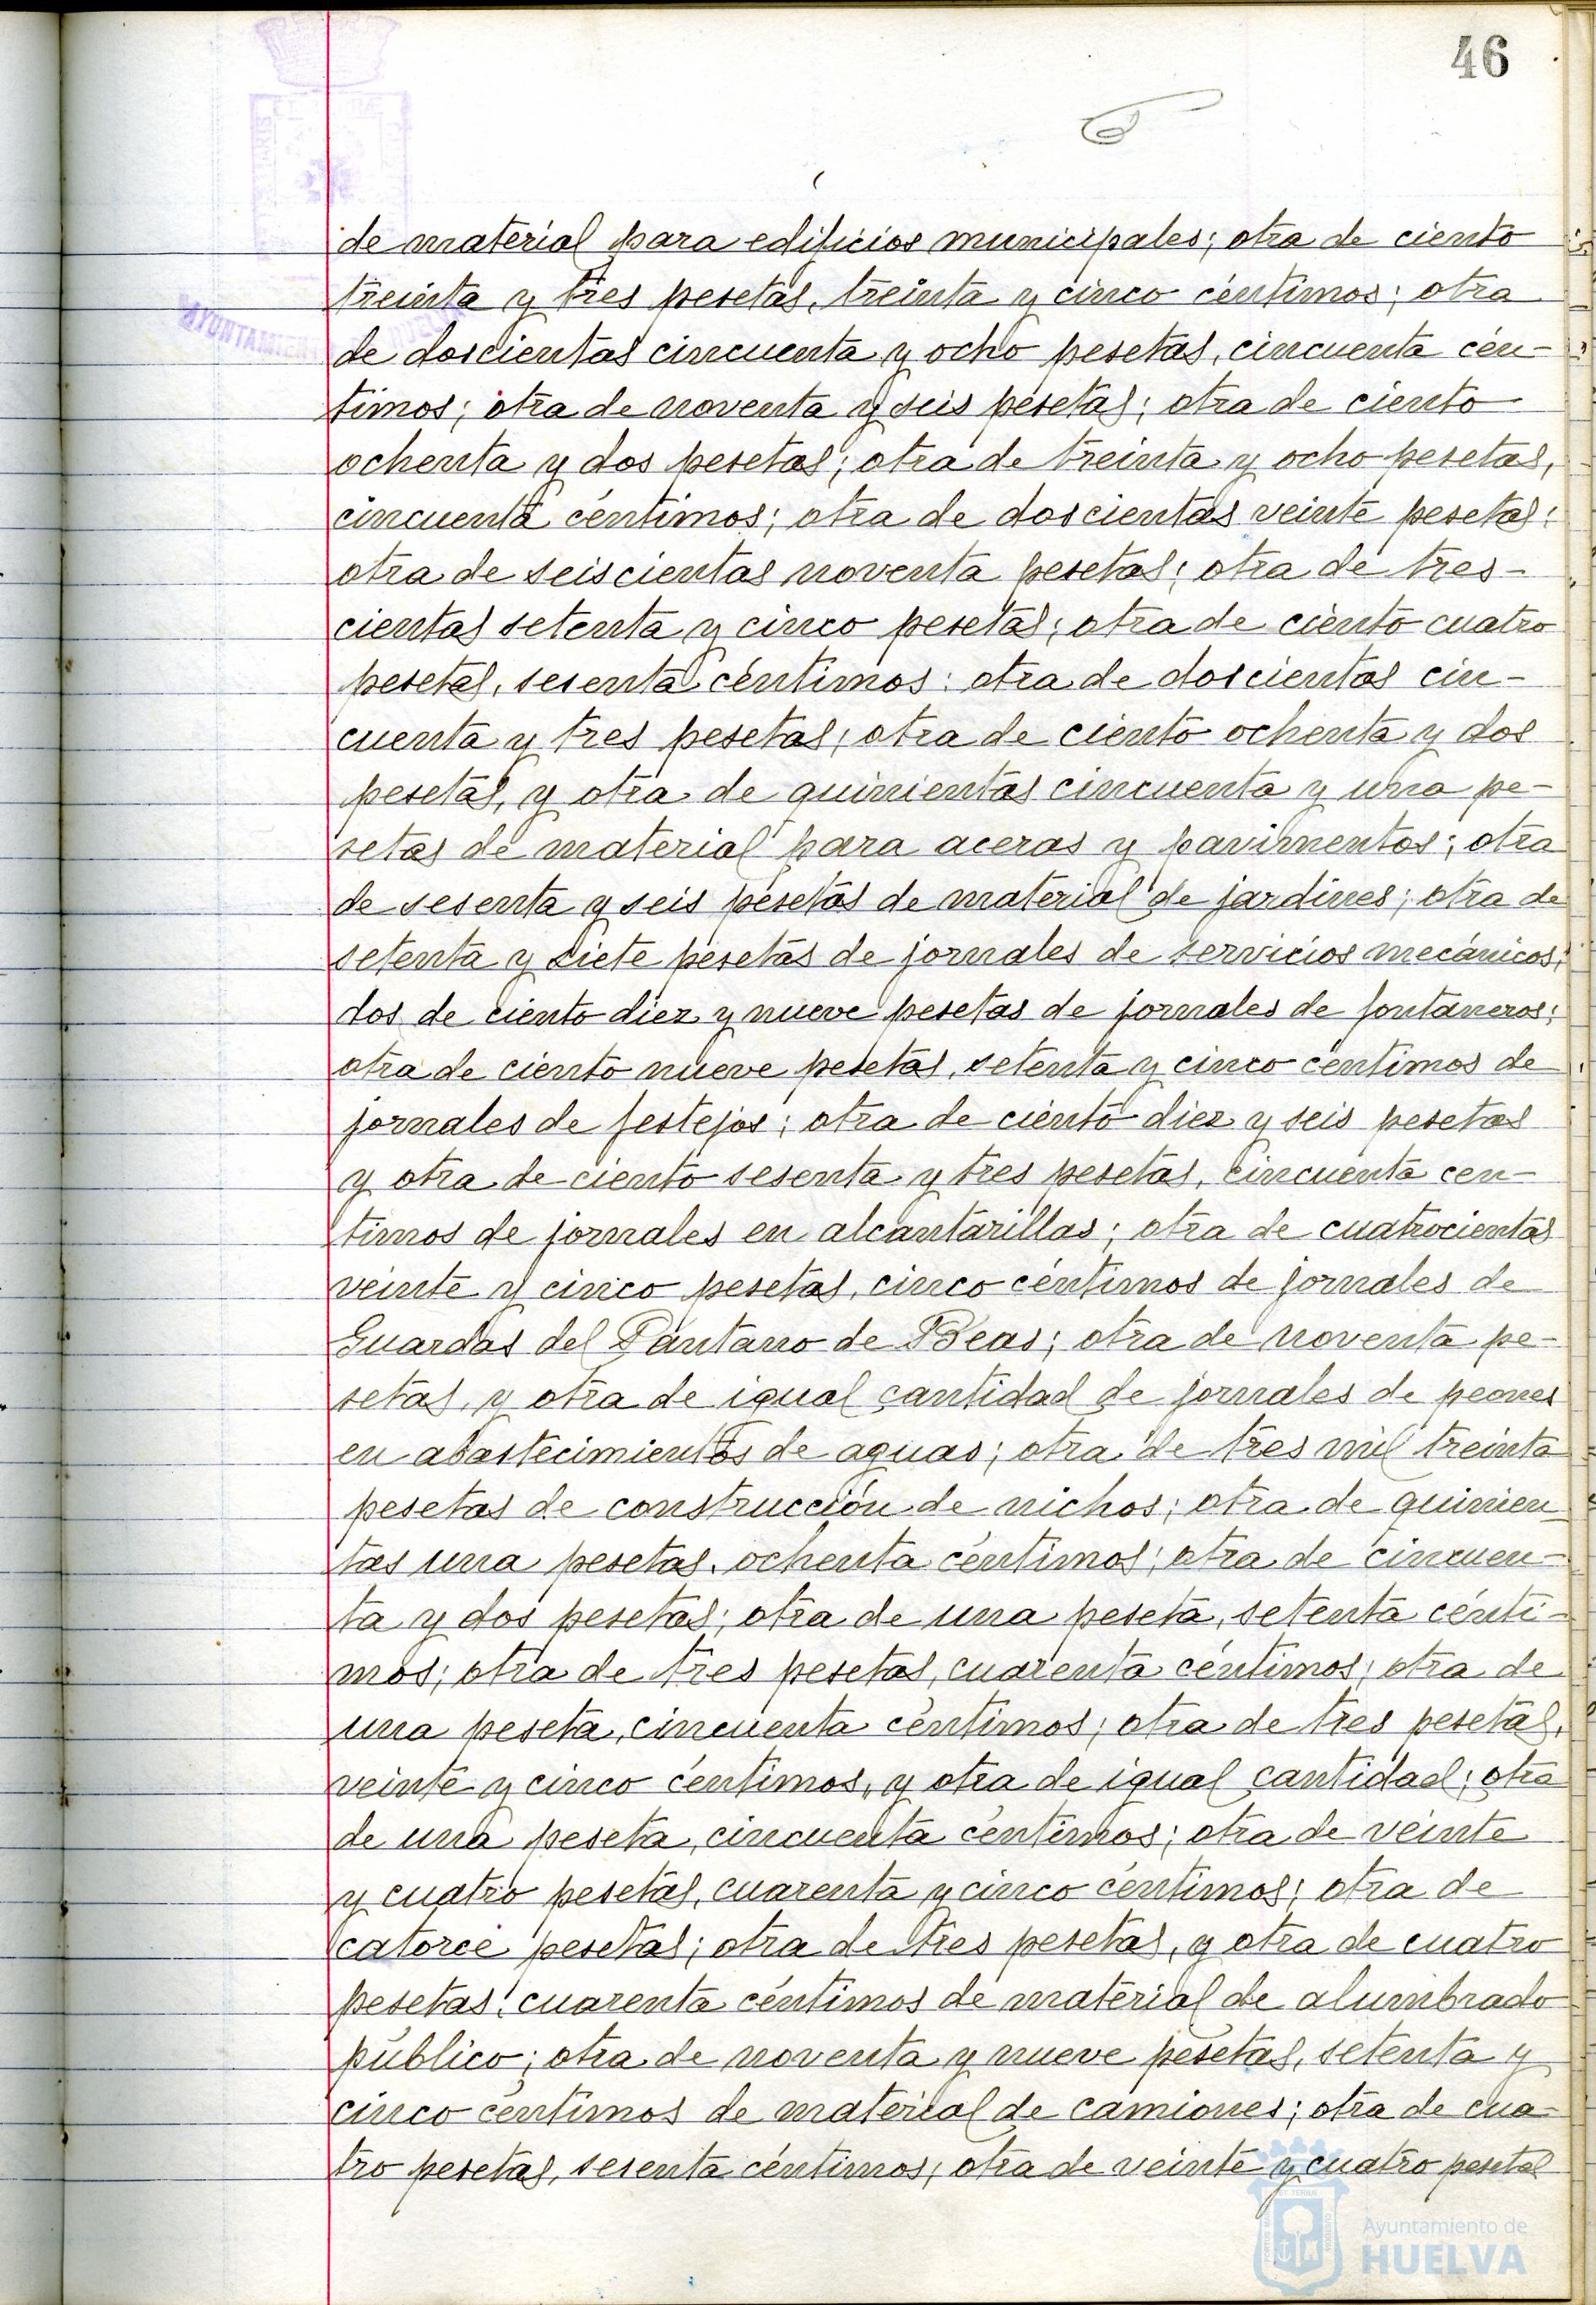 46
de material para edificios municipales; otra de ciento
treinta y tres pesetas, treinta y cinco céntimos; otra
de doscientas cincuenta y ocho pesetas, cincuenta cén-
timos; otra de noventa y seis pesetas; otra de ciento
ochenta y dos pesetas; otra de treinta y ocho pesetas,
cincuenta céntimos; otra de doscientas veinte pesetas;
otra de seiscientas noventa pesetas; otra de tres-
cientas setenta y cinco pesetas; otra de ciento cuatro
pesetas, sesenta céntimos; otra de doscientas cin-
cuenta y tres pesetas; otra de ciento ochenta y dos
pesetas, y otra de quinientas cincuenta y una pe-
setas de material para aceras y pavimentos; otra
de sesenta y seis pesetas de material de jardines; otra de
setenta y siete pesetas de jornales de servicios mecánicos;
dos de ciento diez y nueve pesetas de jornales de fontaneros;
otra de ciento nueve pesetas, setenta y cinco centimos de
jornales de festejos; otra de ciento diez y seis pesetas
y otra de ciento sesenta y tres pesetas, cincuenta cen-
timos de jornales en alcantarillas; otra de cuatrocientas
veinte y cinco pesetas, cinco céntimos de jornales de
Guardas del Pantano de Beas; otra de noventa pe-
setas, y otra de igual cantidad de jornales de peones
en abastecimientos de aguas; otra de tres mil treinta
pesetas de construcción de nichos; otra de quinien
tas una pesetas, ochenta céntimos; otra de cincuen-
ta y dos pesetas; otra de una peseta, setenta cénti-
mos; otra de tres pesetas, cuarenta céntimos; otra de
una peseta, cincuenta céntimos; otra de tres pesetas,
veinte y cinco céntimos, y otra de igual cantidad; otra
de una peseta, cincuenta céntimos; otra de veinte
y cuatro pesetas, cuarenta y cinco céntimos; otra de
catorce pesetas; otra de tres pesetas, y otra de cuatro
pesetas, cuarenta céntimos de material de alumbrado
público; otra de noventa y nueve pesetas, setenta y
cinco centimos de material de camiones; otra de cua-
tro pesetas, sesenta céntimos; otra de veinte y cuatro pesetas
AYUNTAMIEN
Ayuntamiento de
HUELVA